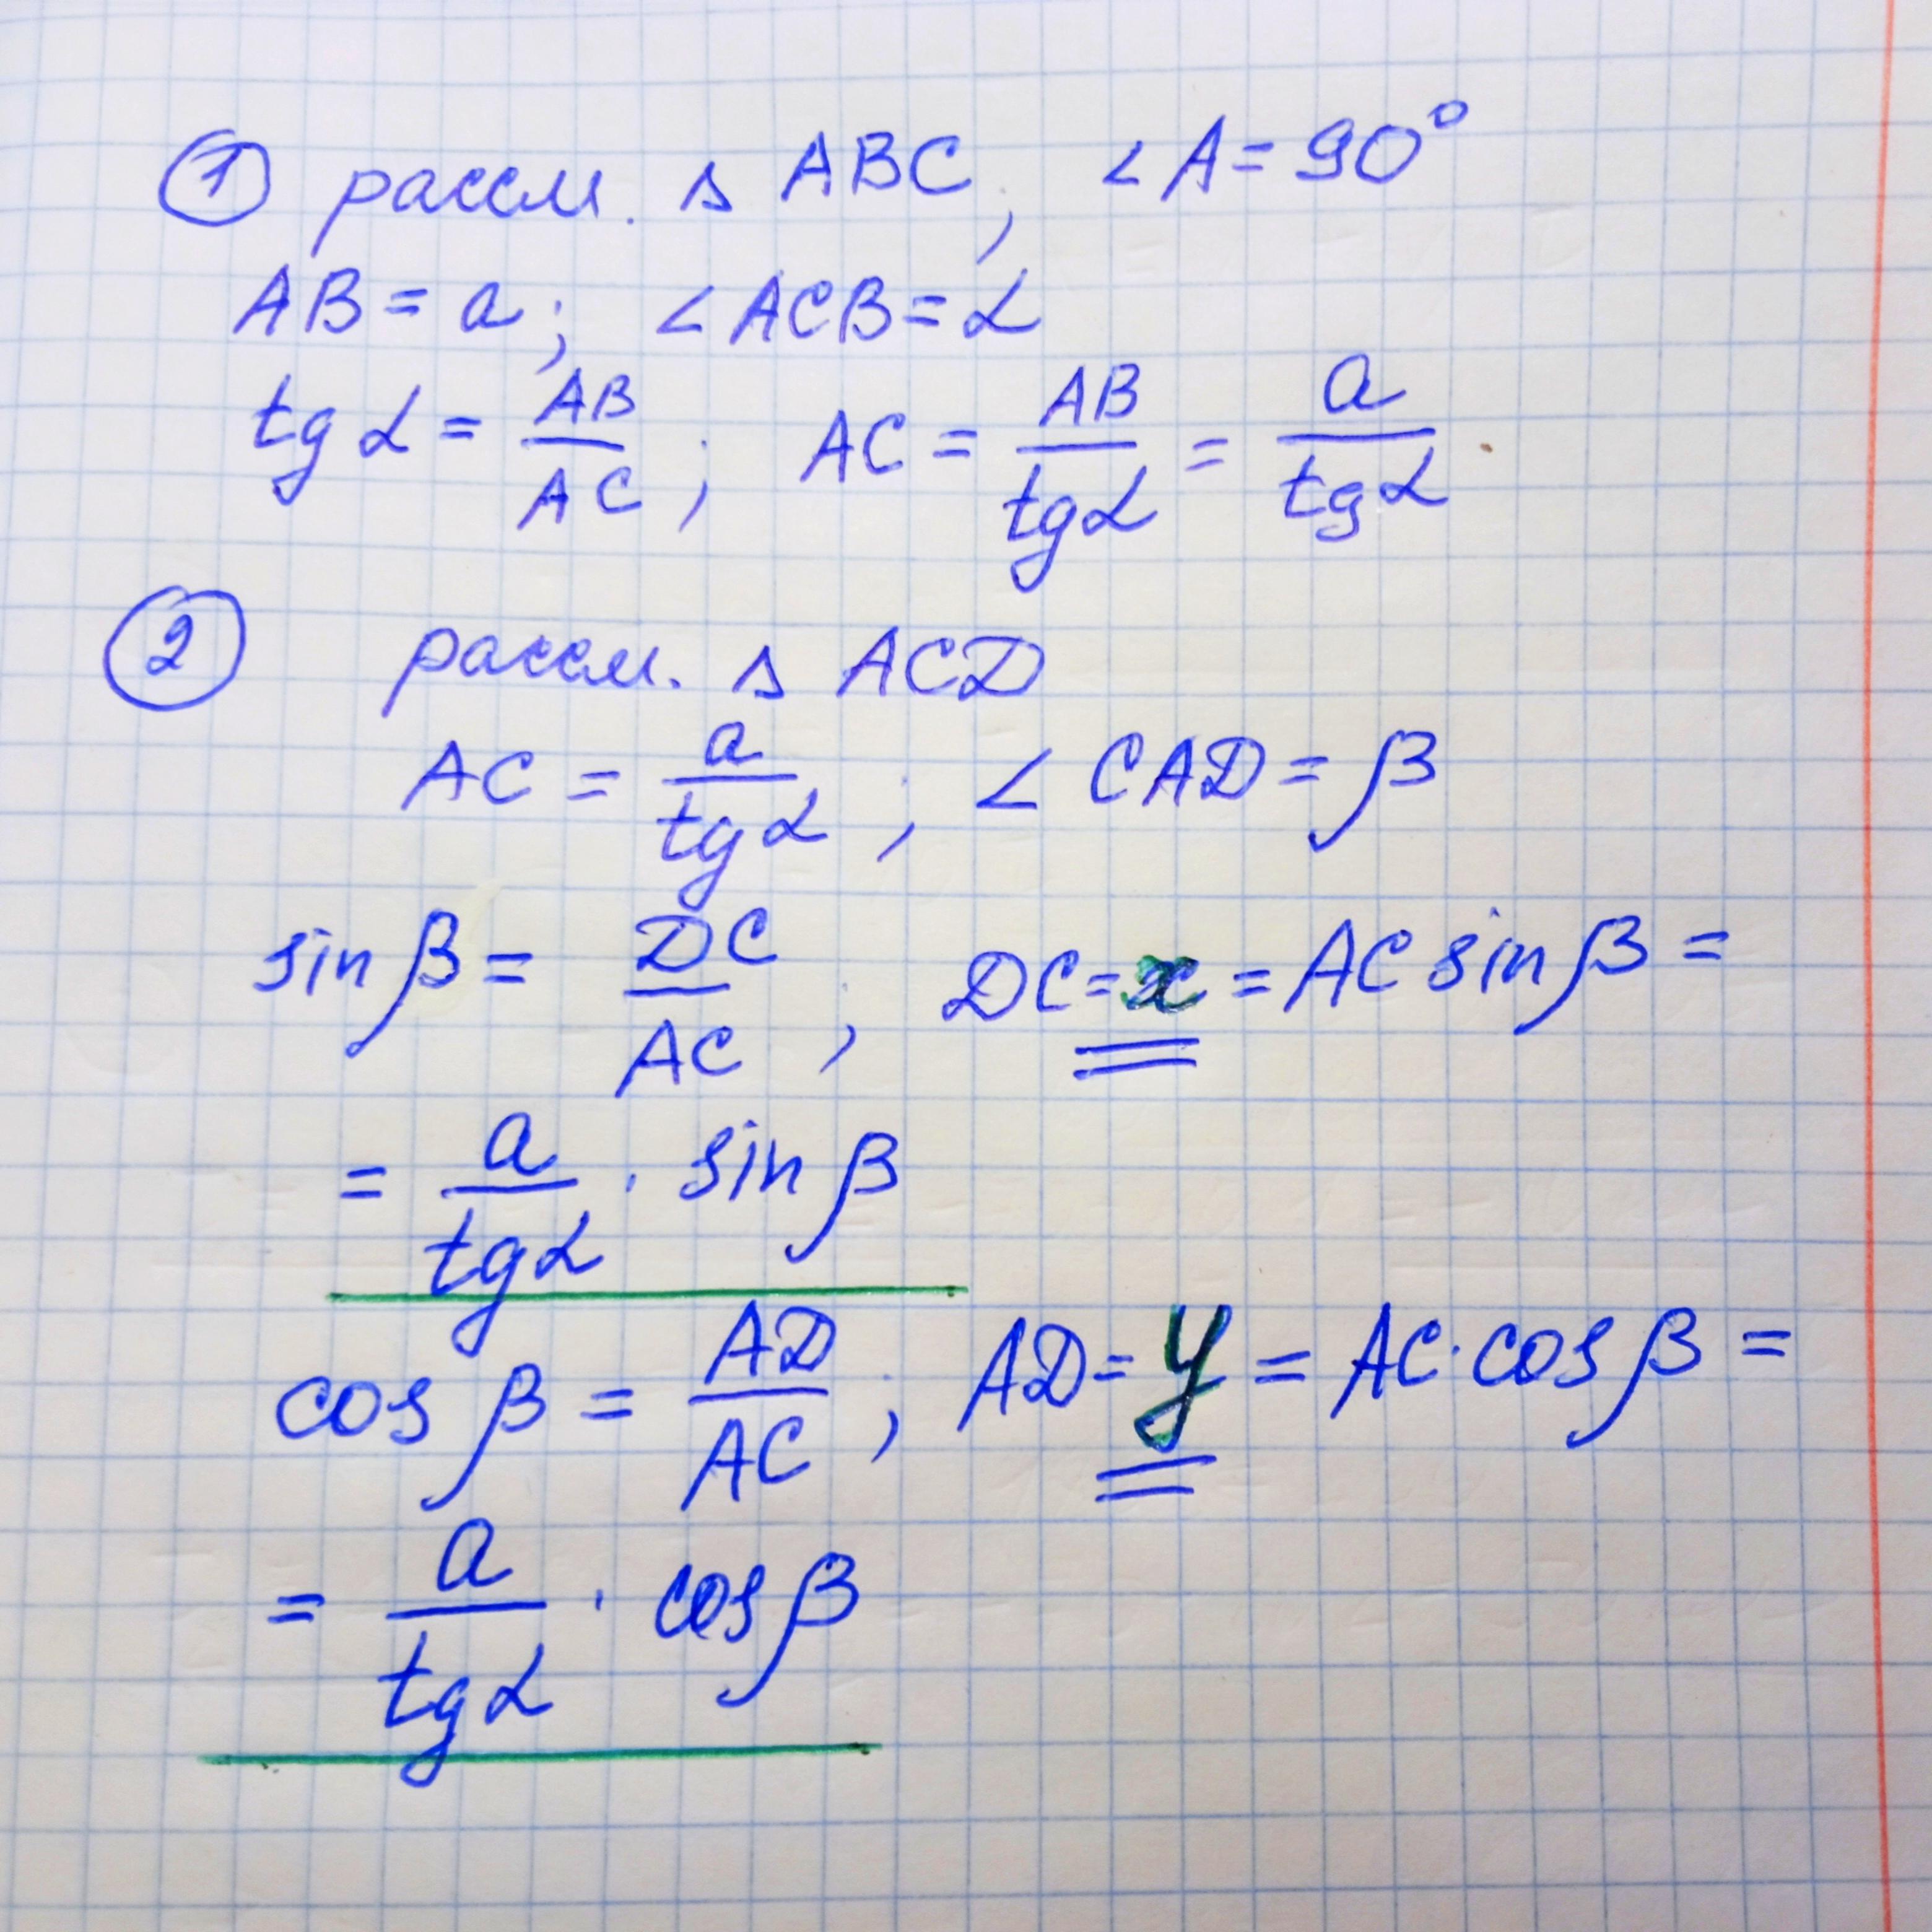 ① рассм. Δ ABC, ∠A = 90°
AB = a; ∠ACB = α
tg α = AB/AC; AC = AB/tgα = a/tgα
② рассм. Δ ACD
AC = a/tgα; ∠CAD = β
sin β = DC/AC; DC = x = AC sin β =
= a/tgα · sin β
cos β = AD/AC; AD = y = AC · cos β =
= a/tgα · cos β